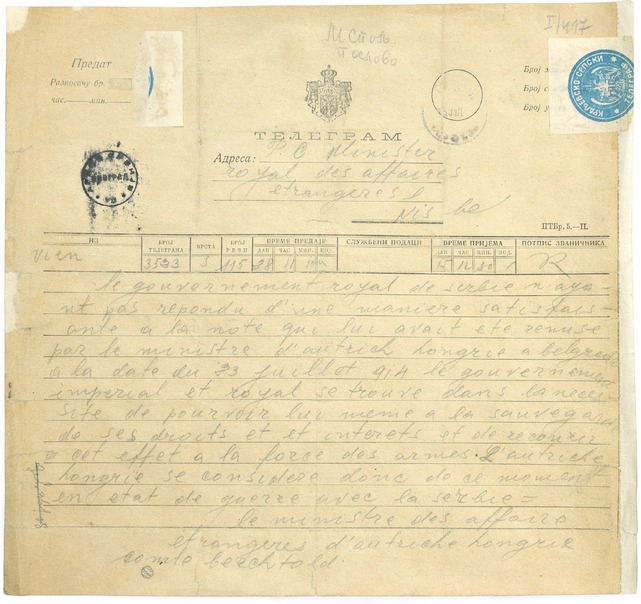 I/417
М Стољ.
Послово
Предат
Разносачу бр.
час.— мин.
КРАЉЕВСКО-СРПСКИ
Број
Број
Број
ТЕЛЕГРАМ
Адреса: P.C Minister
royal des affaires
etrangeres
Nis be
ПТБр. 5.—II.
ИЗ БРОЈ ТЕЛЕГРАМА ВРСТА БРОЈ РЕЧИ ВРЕМЕ ПРЕДАЈЕ СЛУЖБЕНИ ПОДАЦИ ВРЕМЕ ПРИЈЕМА ПОТПИС ЗВАНИЧНИКА
ДАН ЧАС МИН. ДАН ЧАС МИН.
Vien 3523 S 115 28 11 10 R
le gouvernement royal de serbie n aya-
nt pas repondu d'une maniere satisfais-
ante a la note qui lui avait ete remise
par le ministre d'autrich hongrie a belgrade
a la date du 23 juillot 914 le gouvernement
imperial et royal se trouve dans la neces
site de pourvoir lui meme a la sauvegar
de ses droits et et interets et de recourir
a cet effet a la force des armes. L'autriche
hongrie se considere donc de ce moment
en etat de guerre avec la serbie =
le ministre des affaire
etrangeres d'autriche hongrie
comte berchtold.